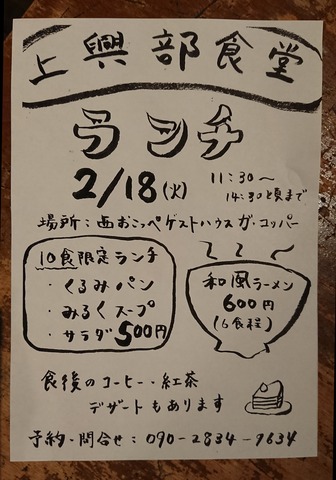 上興部食堂
ランチ
2/18(火)
11:30〜
14:30頃まで
場所:西おこっぺゲストハウスガ・コッパー
10食限定ランチ
・くるみパン
・みるくスープ
・サラダ 500円
和風ラーメン
600円
(6食程)
食後のコーヒー・紅茶
デザートもあります
予約・問合せ:090-2834-9634